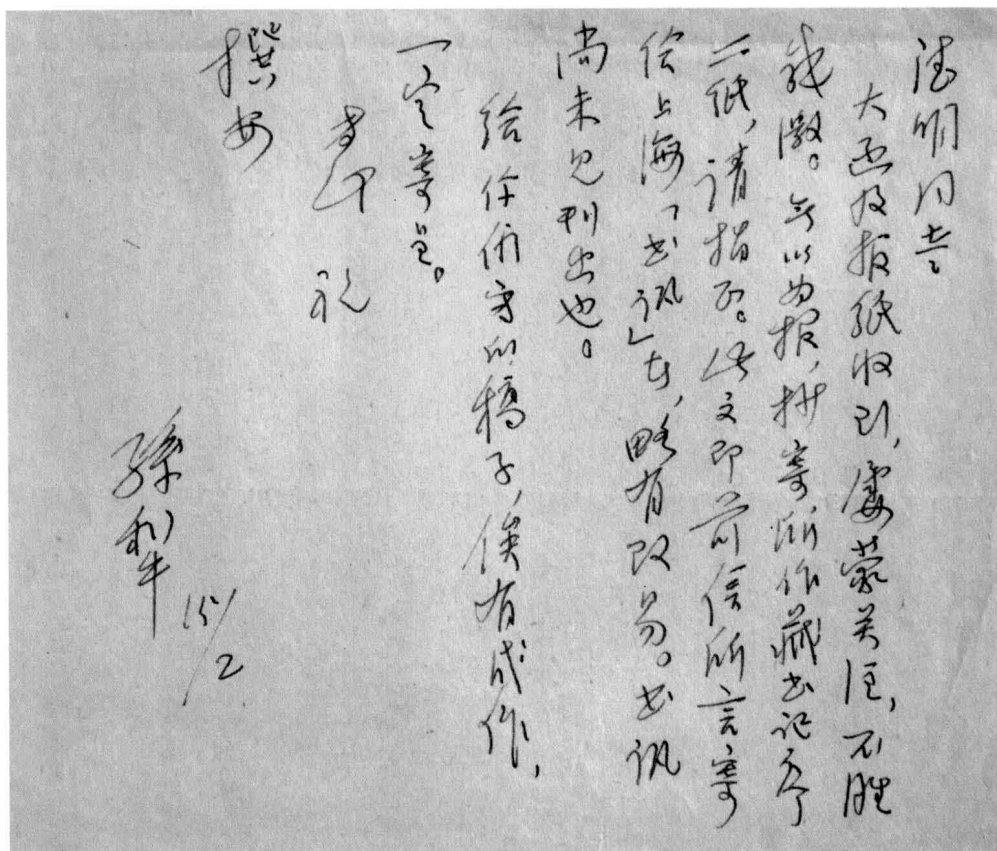 德明同志
大函及报纸收到，屡蒙关注，不胜
感激。无以为报，抄寄所作藏书记序
一纸，请指正。此文即前信所言寄
给上海「书讯」者，略有改易。书讯
尚未见刊出也。
给你们写的稿子，俟有成作，
一定寄呈。
专此 祝
撰安
孫犁 15/2